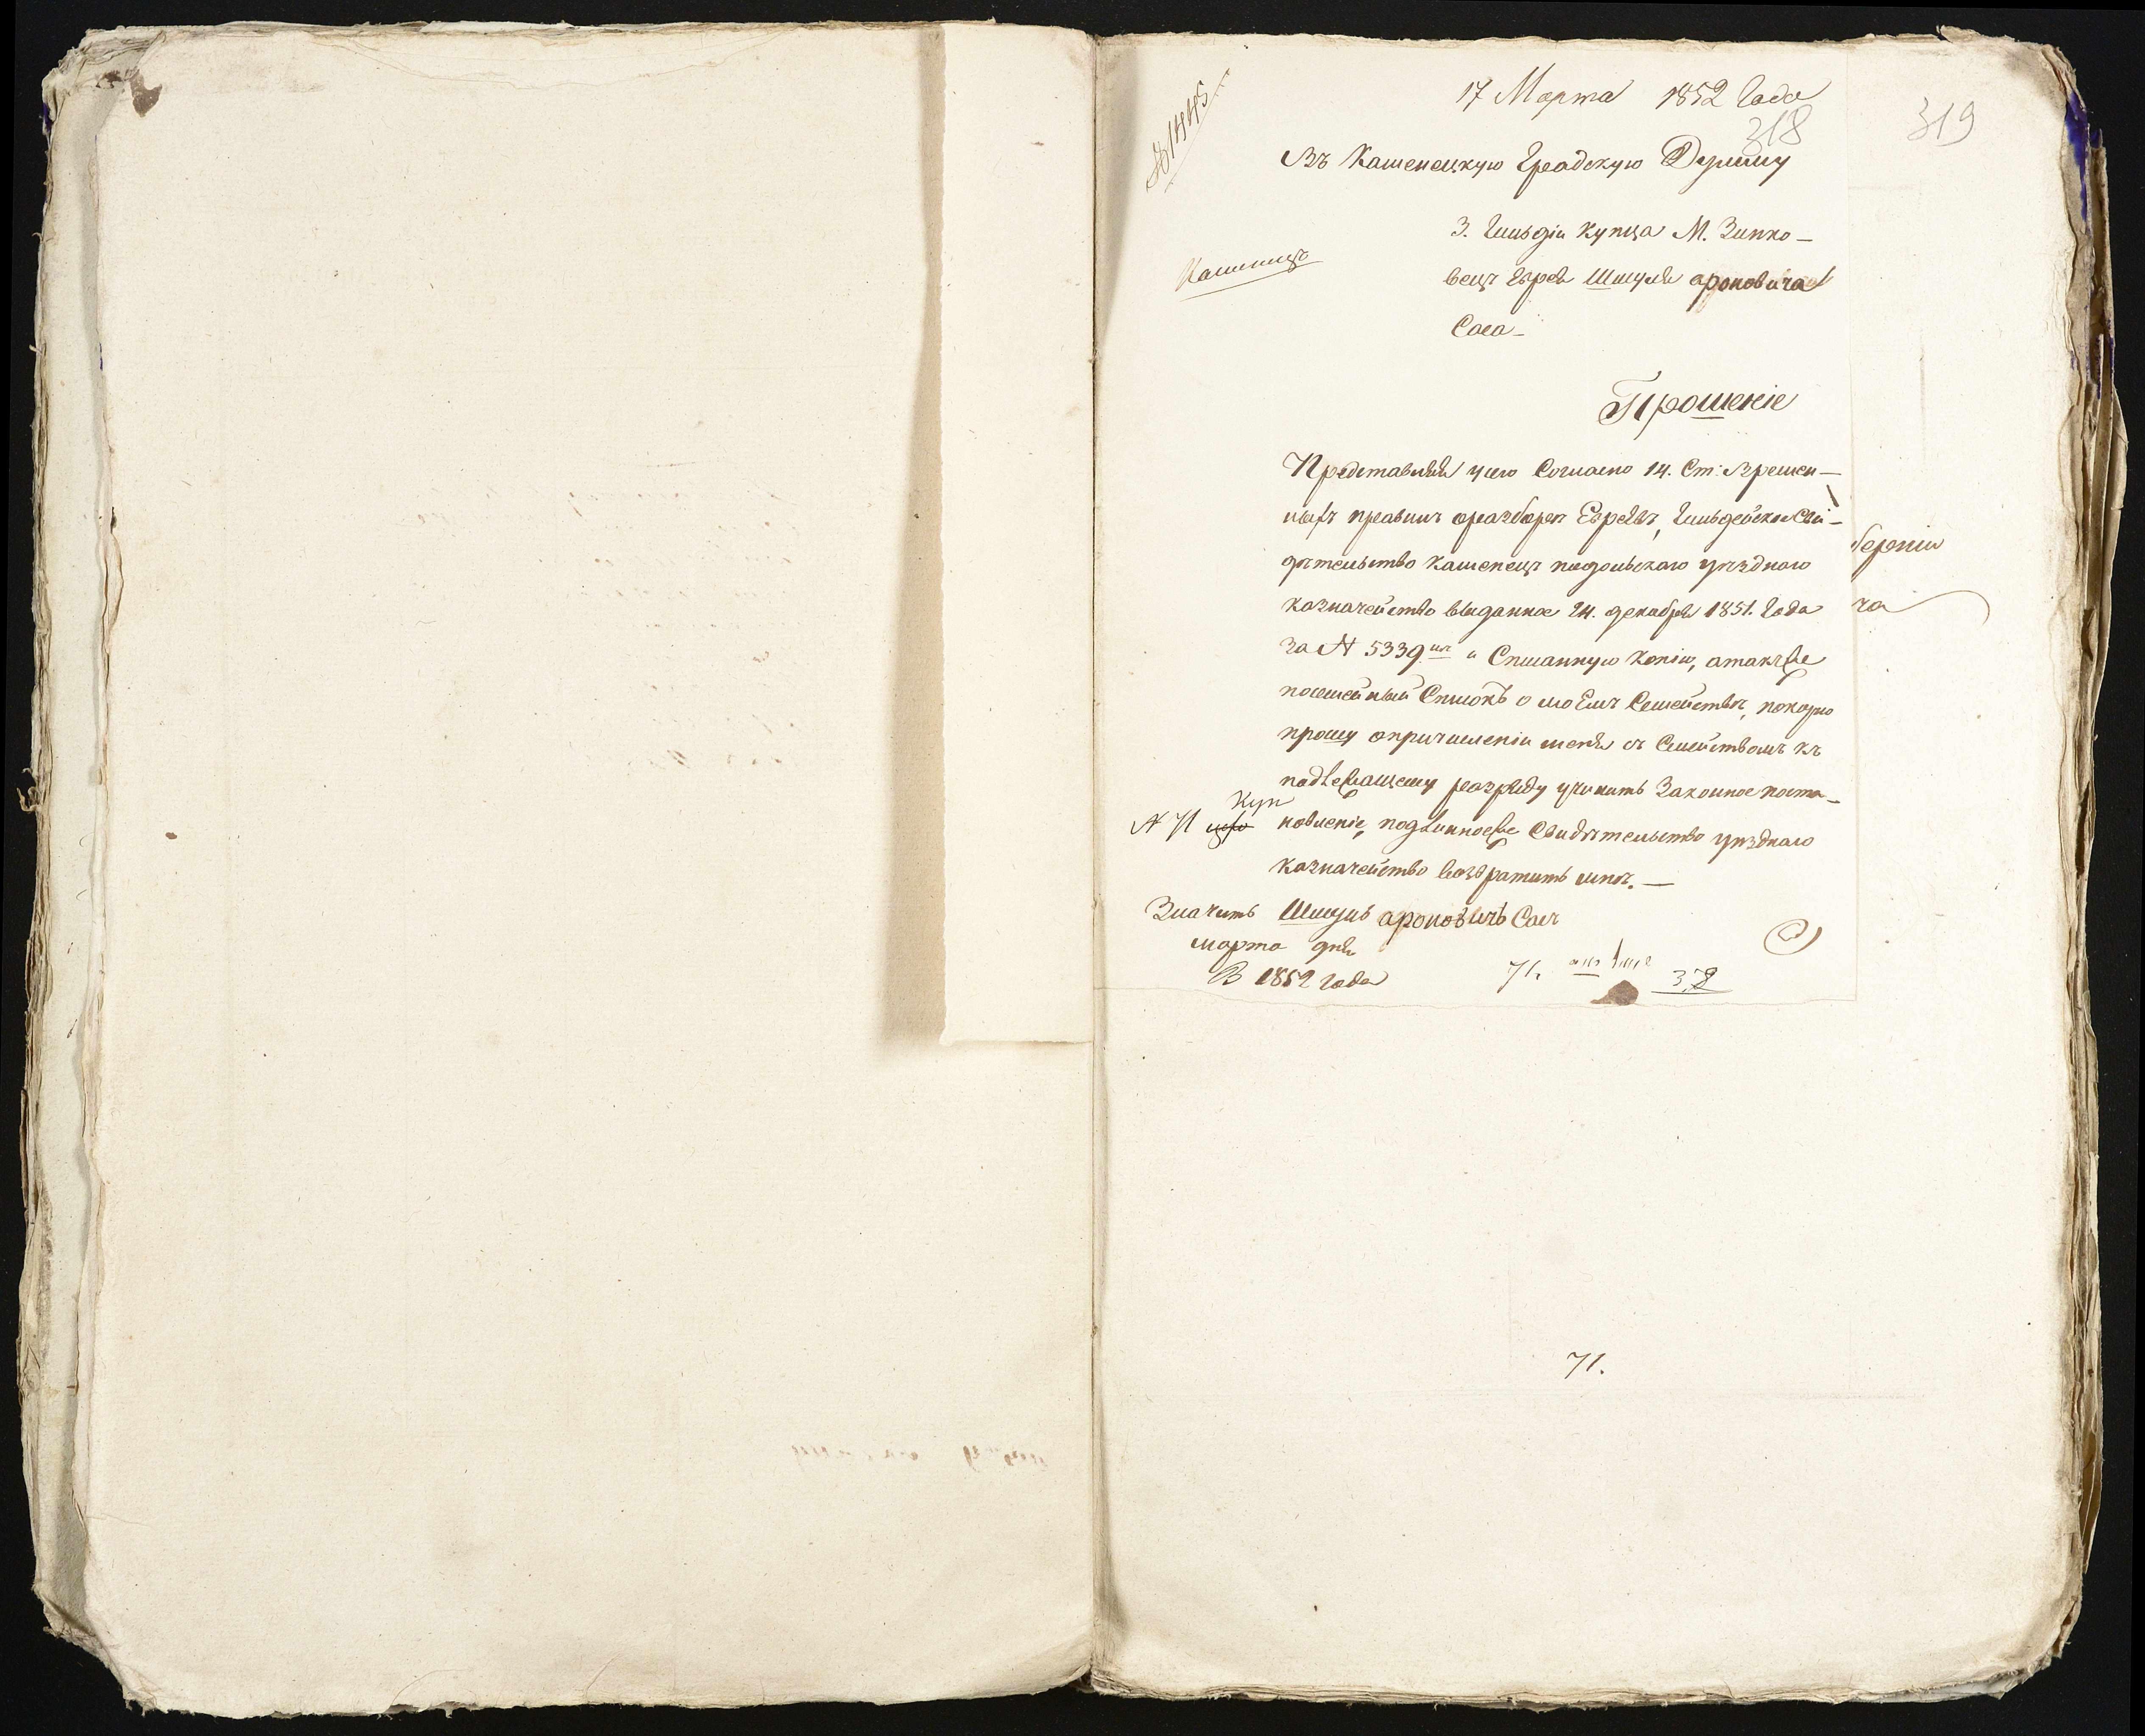 17 Марта 1852 Года
318
319
№ 1445
Въ Каменецкую Градскую Думу
3. Гильдіи Купца М. Зинко-
вецъ Еврея Шмуля Ароновича
Саса
Каменецъ
Прошеніе
Представляя усего Согласно 14. Ст: Времен-
ныхъ правилъ оразборе Евреевъ, Гильдейское Сви-
дѣтельство Каменецъ подольскаго уѣзднаго
казначейство выданное 24. декабря 1851. Года
за № 5339 и Списанную Копію, атакже
посемейный Списокъ о моемъ Семействѣ, покорно
прошу опричисленіи меня съ Семействомъ къ
подлежащему разряду учинить Законное поста-
новленіе, подлинноеже Свидѣтельство уѣзднаго
казначейство возвратить мнѣ. —
№ 71 Куп
Значитъ Шмуль Ароновичъ Сасъ
марта дня
1852 года
71.
318
берніи
ча
71.